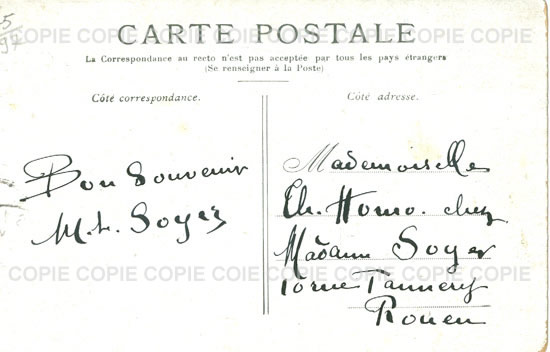 5
97
CARTE POSTALE
La Correspondance au recto n'est pas acceptée par tous les pays étrangers
(Se renseigner à la Poste)
Côté correspondance.
Côté adresse.
Bon Souvenir
M.L. Soyer
Mademoiselle
Eh. Homo. chez
Madame Soyer
10 rue Tannery
Rouen
COPIE COPIE COPIE COPIE COPIE COPIE
COPIE COPIE COPIE COPIE COPIE COPIE
COPIE COPIE COIE COPIE COPIE COPIE